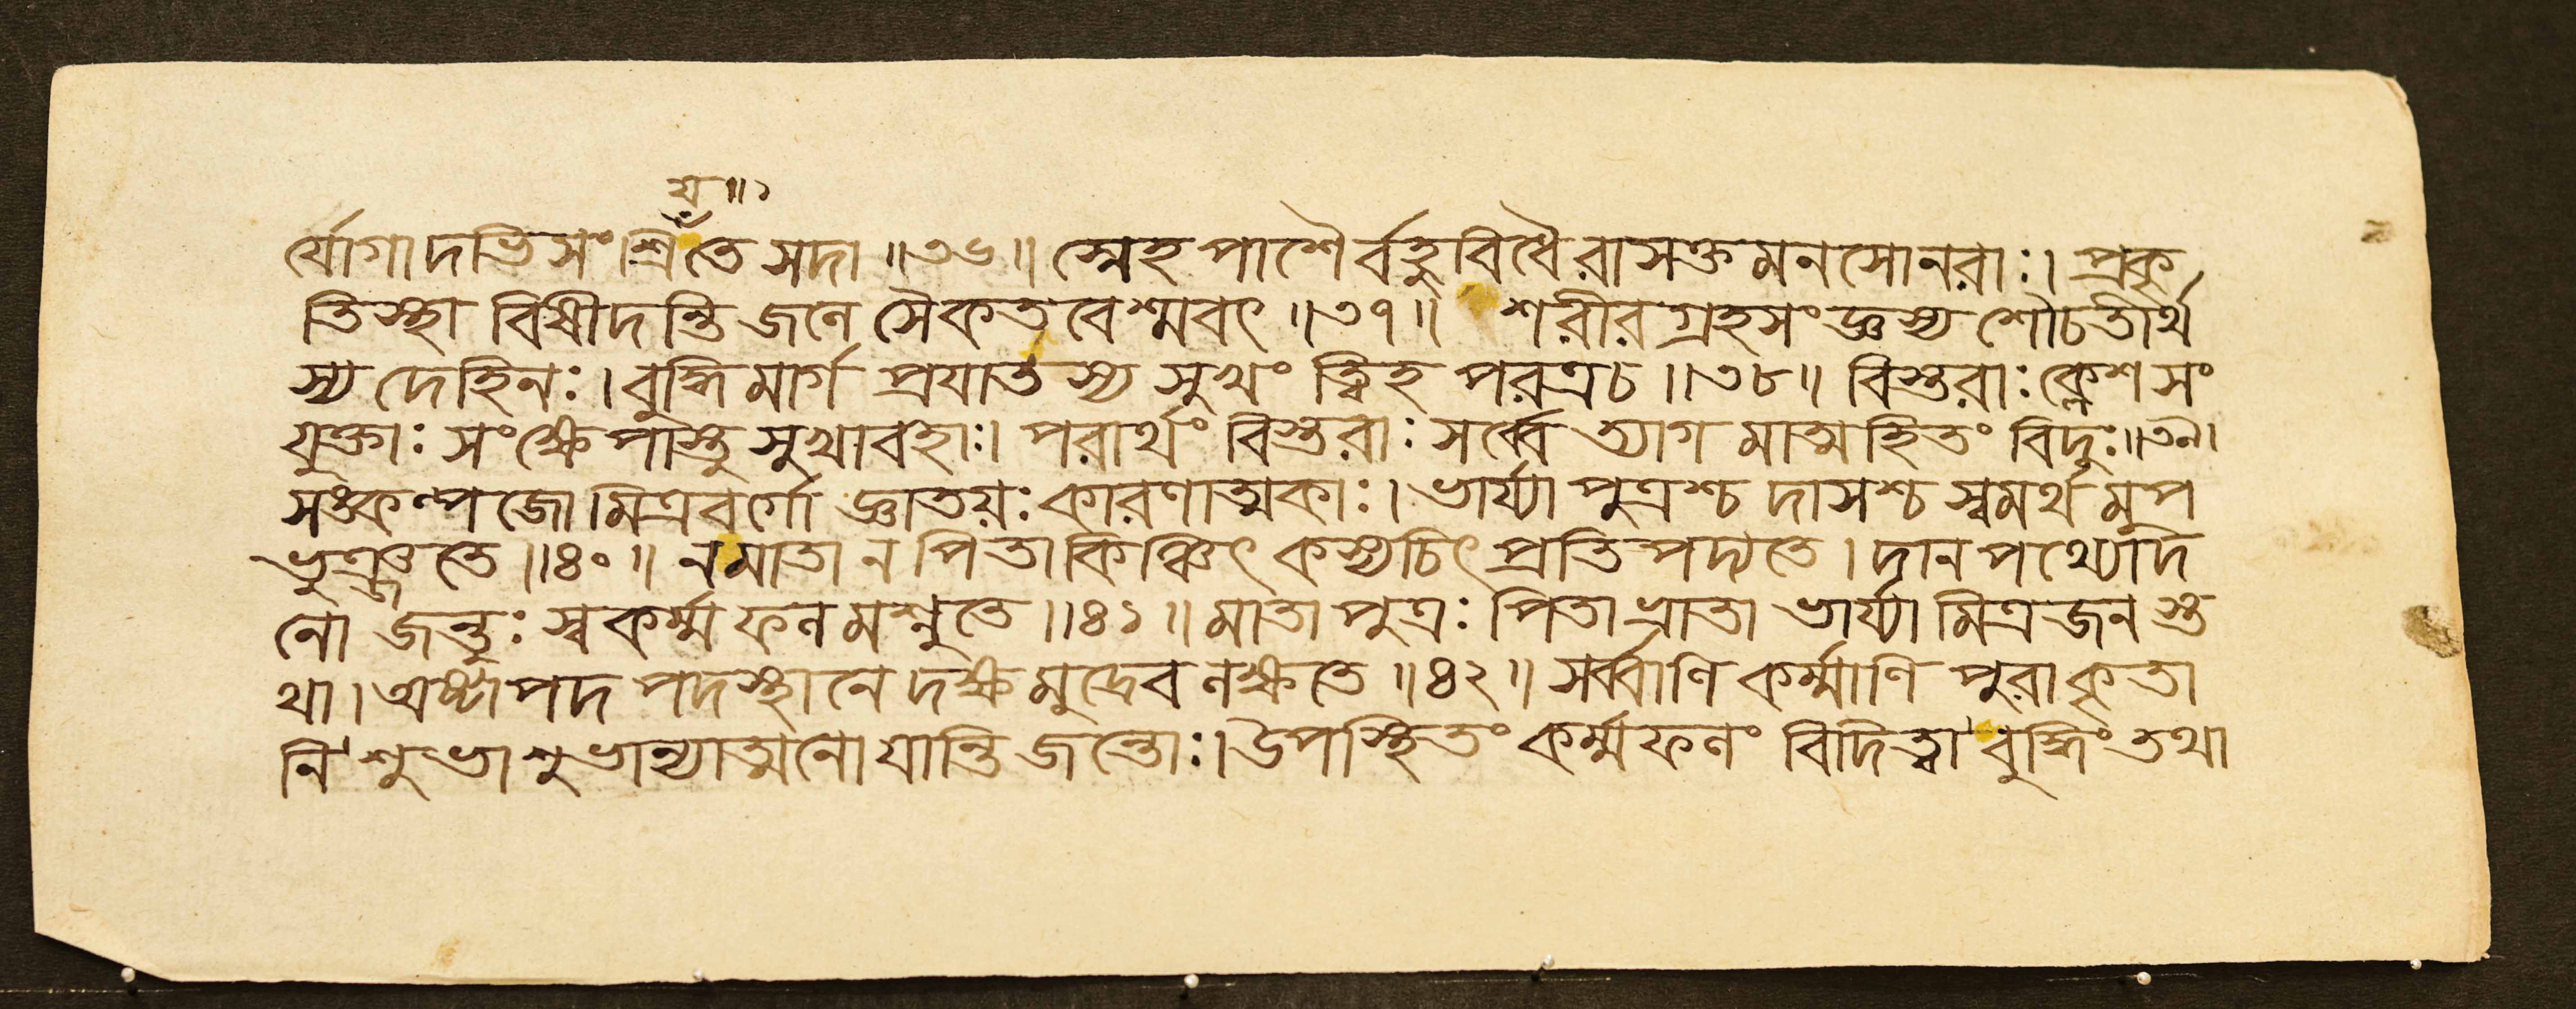 য॥১
র্যোগাদভিসংশ্রিতে সদা॥৩৬॥ স্নেহপাশৈর্বহুবিধৈরাসক্তমনসোনরাঃ। প্রকৃ
তিস্থা বিষীদন্তি জলে সৈকতবেশ্মবৎ॥৩৭॥ শরীরগ্রহসংজ্ঞস্য শৌচতীর্থ
স্য দেহিনঃ। বুদ্ধিমার্গ প্রযাতস্য সুখং ত্বিহ পরত্রচ॥৩৮॥ বিস্তরাঃ ক্লেশসং
যুক্তাঃ সংক্ষেপাস্তু সুখাবহাঃ। পরার্থং বিস্তরাঃ সর্ব্বে ত্যাগমাত্মহিতং বিদুঃ॥৩৯।
সঙ্কল্পজো মিত্রবর্গো জ্ঞাতয়ঃ কারণাত্মকাঃ। ভার্য্যা পুত্রশ্চ দাসশ্চ স্বমর্থমুপ
ভুঞ্জতে॥৪০॥ ন মাতা ন পিতা কিঞ্চিৎ কস্যচিৎ প্রতিপদ্যতে। দানপথ্যোদ
নো জন্তুঃ স্বকর্ম্মফলমশ্নুতে॥৪১॥ মাতা পুত্রঃ পিতা ভ্রাতা ভার্য্যা মিত্রজনস্ত
থা। অষ্টাপদপদস্থানে দক্ষমুদ্রেব লক্ষতে॥৪২॥ সর্ব্বাণি কর্ম্মাণি পুরাকৃতা
নি শুভাশুভান্যাত্মনো যান্তি জন্তোঃ। উপস্থিতং কর্ম্মফলং বিদিত্বা বুদ্ধিং তথা